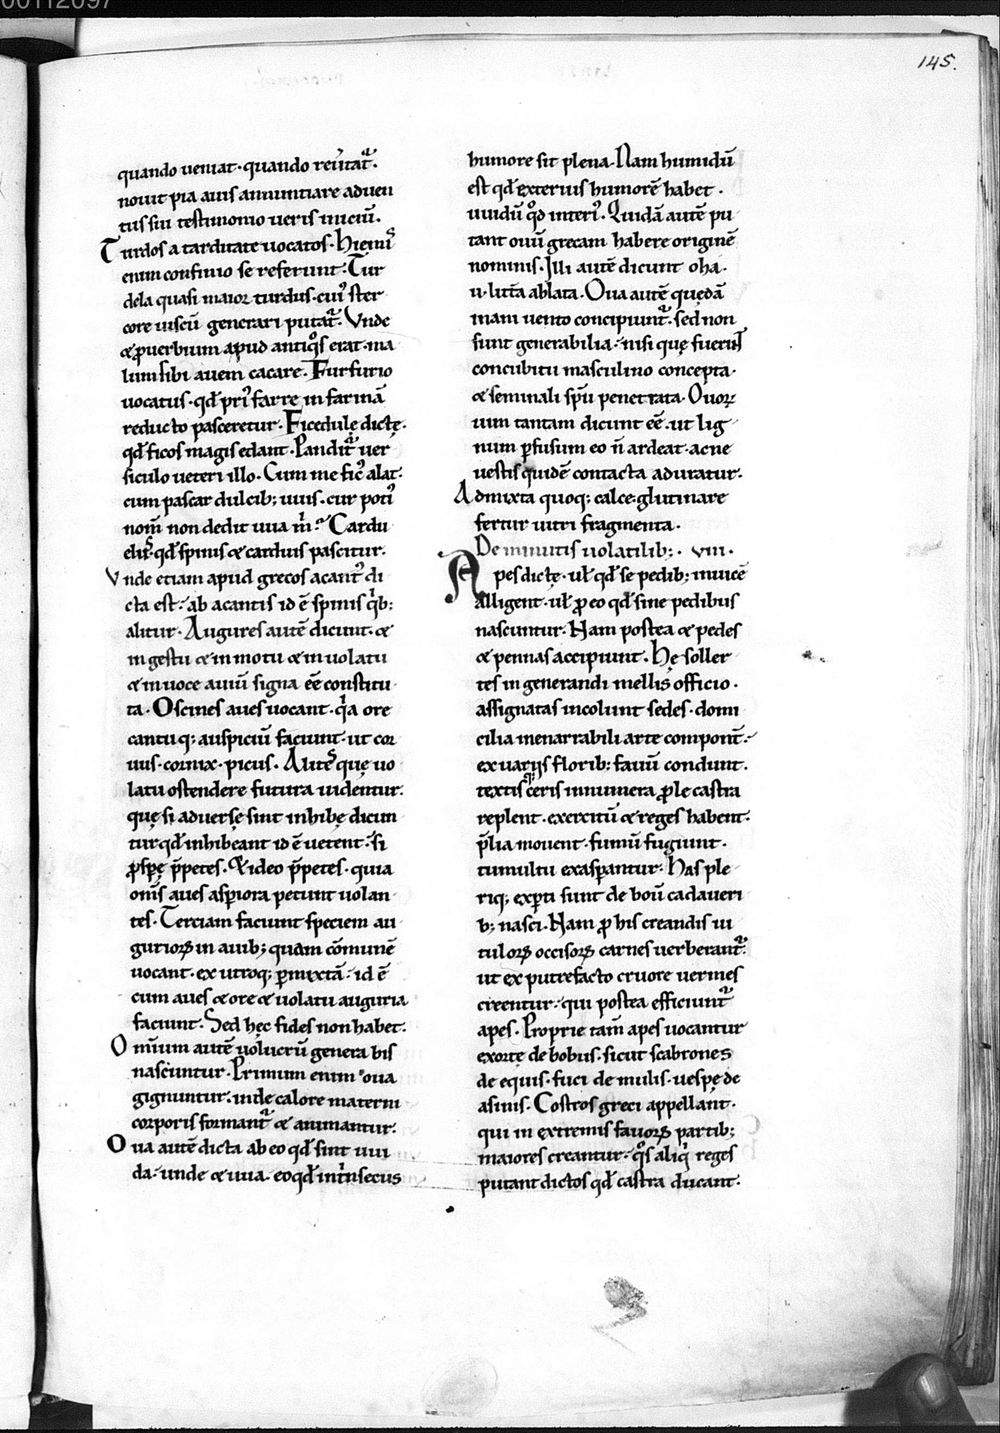 00112097
145.
quando ueniat·quando reu̾tat᷒·
nouit pia auis annuntiare aduen
tus sui testimonio ueris iniciū·
Turdos a tarditate uocatos·Hiemi᷒
enim confinio se referunt·Tur
dela quasi maior turdus·cui᷒ ster
core uiscū generari putat᷒·Vnde
& ꝓuerbium apud antiqͦs erat·ma
lum sibi auem cacare·Furfurio
uocatus·qđ pri᷒ farre in farinā
redacto pasceretur·Ficedulę dictę·
qđ ficos magis edant·Pandit᷒ uer
siculo ueteri illo·Cum me fic᷒ alat·
cum pascar dulcib; uuis·cur poti᷒
nom̄ non dedit uua m̍·Cardu
elis·qđ spinis & carduis pascitur·
Vnde etiam apud grecos acant᷒ di
cta est·ab acantis id ē spinis qͥb;
alitur·Augures autē dicunt·&
in gestu & in motu & in uolatu
& in uoce auiū signa eē constitu
ta·Oscines aues uocant·qͥa ore
cantuq; auspiciū faciunt·ut cor
uus·cornix·picus·Alites quę uo
latu ostendere futura uidentur·
quę si aduersę sint inhibę dicun
tur qđ inhibeant id ē uetent·si
ꝓspę p̄petes·& ideo p̄petes·quia
om̄s aues asꝑiora petunt uolan
tes·Terciam faciunt speciem au
guriorꝝ in auib; quam cōmunē
uocant·ex utroq; ꝑmixtā·id ē
cum aues & ore & uolatu auguria
faciunt·Sed hęc fides non habet·
Omnium autē uolucrū genera bis
nascuntur·Primum enim oua
gignuntur·inde calore materni
corporis formant᷒ & animantur·
Oua autē dicta ab eo qđ sint uui
da·unde & uua·eo qđ int̾nsecus
humore sit plena·Nam humidū
est qđ exterius humorē habet·
uuidū qđ interi᷒·Quidā autē pu
tant ouū grecam habere originē
nominis·Illi autē dicunt oha·
u·litt̄a ablata·Oua autē quędā
inani uento concipiunt᷒·sed non
sunt generabilia·nisi quę fuerint
concubitu masculino concepta·
& seminali sp̄u penetrata·Ouoꝝ
uim tantam dicunt eē·ut lig
num ꝑfusum eo n̄ ardeat·ac ne
uestis quidē contacta aduratur·
Admixta quoq; calce·glutinare
fertur uitri fragmenta·
De minutis uolatilib;·VIII·
Apes dictę·uł qđ se pedib; inuicē
alligent·uł ꝓ eo qđ sine pedibus
nascuntur·Nam postea & pedes
& pennas accipiunt·Hę soller
tes in generandi mellis officio·
assignatas incolunt sedes·domi
cilia inenarrabili arte compont̄·
ex uariis florib; fauū condunt·
textisq; ceris innumera ꝓle castra
replent·exercitū & reges habent·
p̄lia mouent·fumū fugiunt·
tumultu exasꝑantur·Has ple
riq; exꝑti sunt de boū cadaueri
b; nasci·Nam ꝓ his creandis ui
tulorꝝ occisorꝝ carnes uerberant᷒·
ut ex putrefacto cruore uermes
creentur·qui postea efficiunt᷒
apes·Proprie tam̄ apes uocantur
exortę de bobus·sicut scabrones
de equis·fuci de mulis·uespę de
asinis·Costros greci appellant·
qui in extremis fauorꝝ partib;
maiores creantur·qͦs aliqͥ reges
putant dictos qđ castra ducant·